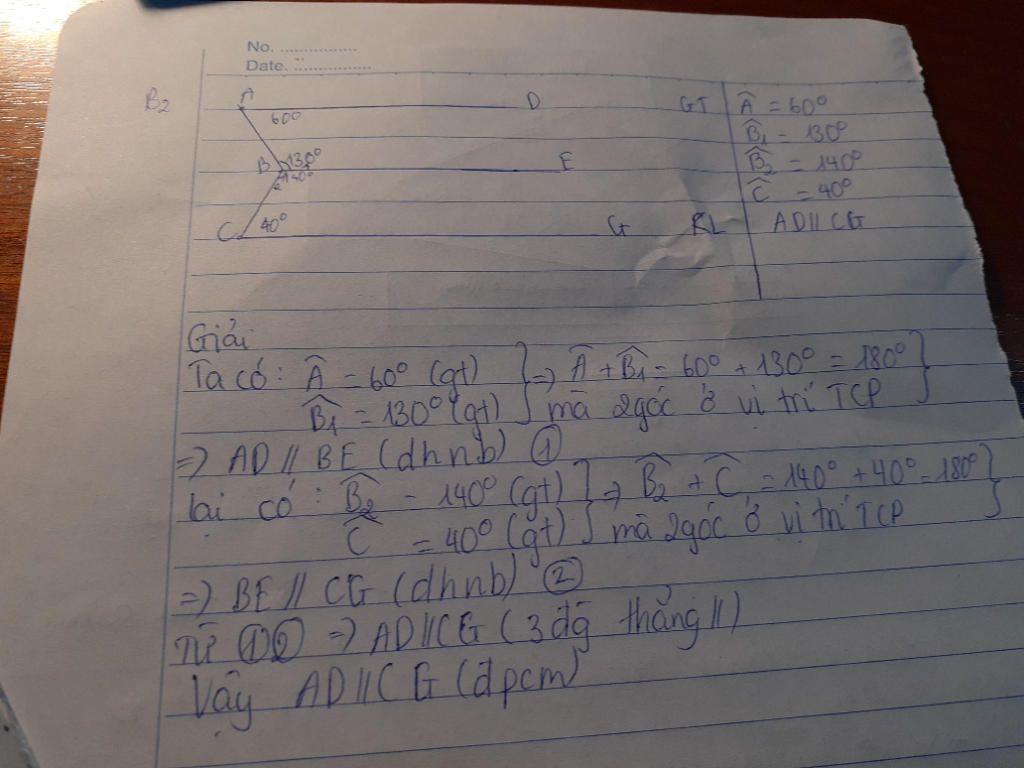 No. ................
Date. ................
B2
A D
60°
B 130° E
2 140°
C 40° G
GT Â = 60°
B̂1 = 130°
B̂2 = 140°
Ĉ = 40°
KL AD // CG
Giải
Ta có: Â = 60° (gt) } => Â + B̂1 = 60° + 130° = 180° }
B̂1 = 130° (gt) } mà 2 góc ở vị trí TCP }
=> AD // BE (dhnb) ①
lại có: B̂2 = 140° (gt) } => B̂2 + Ĉ = 140° + 40° = 180° }
Ĉ = 40° (gt) } mà 2 góc ở vị trí TCP }
=> BE // CG (dhnb) ②
Từ ①② => AD // CG (3 đg thẳng //)
Vậy AD // CG (đpcm)